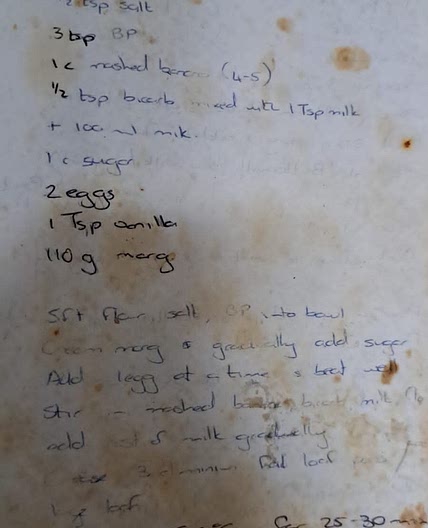 tsp salt
3 tsp BP
1 c mashed banana (4-5)
1/2 tsp bicarb mixed with 1 Tsp milk
+ 100 ml milk
1 c sugar
2 eggs
1 Tsp vanilla
110 g marg
Sift flour, salt, BP into bowl
Cream marg & gradually add sugar
Add 1 egg at a time & beat well
Stir in mashed banana, bicarb milk,
add rest of milk gradually
3 aluminium foil loaf
loaf
25-30